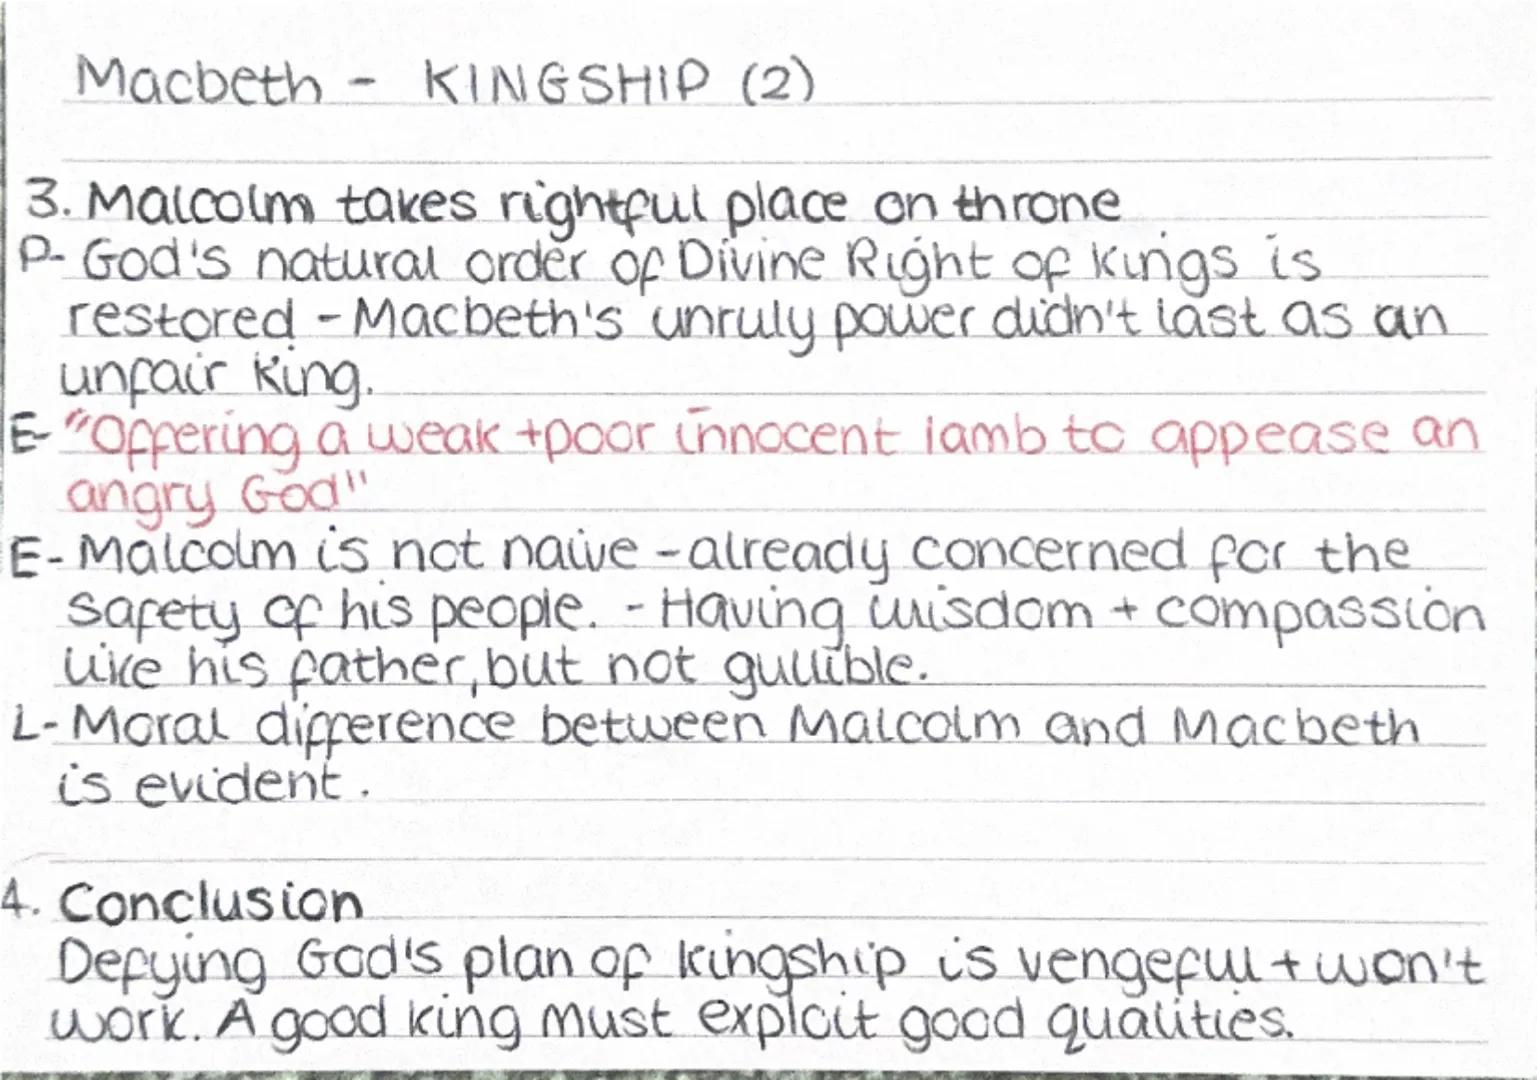 Macbeth - KINGSHIP (2)
3. Malcolm takes rightful place on throne
P- God's natural order of Divine Right of Kings is
restored - Macbeth's unruly power didn't last as an
unfair King.
E- "Offering a weak + poor innocent lamb to appease an
angry God"
E- Malcolm is not naive - already concerned for the
safety of his people. - Having wisdom + compassion
like his father, but not gullible.
L- Moral difference between Malcolm and Macbeth
is evident.
4. Conclusion
Defying God's plan of kingship is vengeful + won't
work. A good king must exploit good qualities.